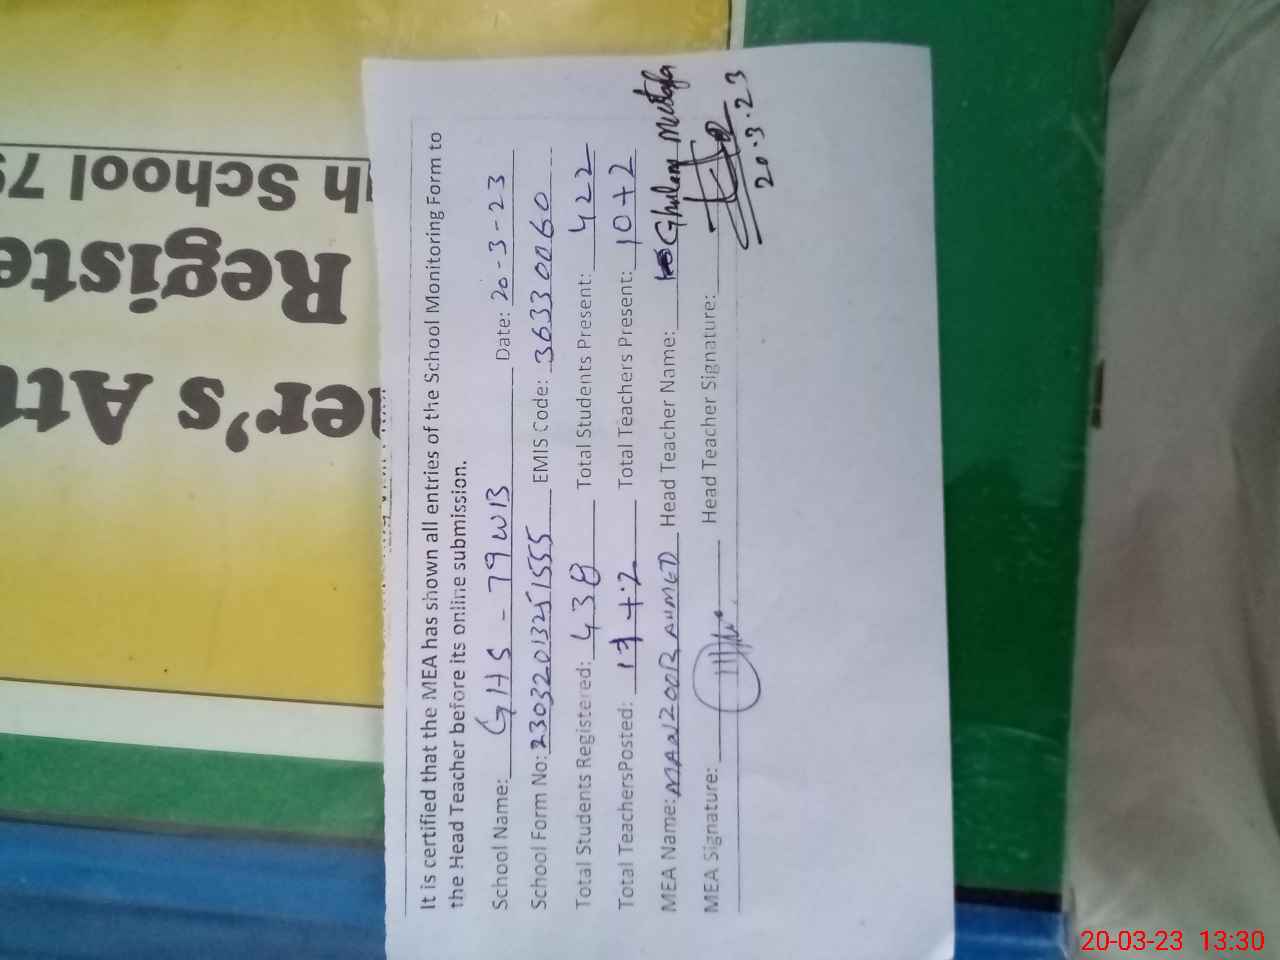 It is certified that the MEA has shown all entries of the School Monitoring Form to
the Head Teacher before its online submission.
School Name: GHS - 79 WB Date: 20-3-23
School Form No: 23032013251555 EMIS Code: 36330060
Total Students Registered: 438 Total Students Present: 422
Total TeachersPosted: 17+2 Total Teachers Present: 10+2
MEA Name: MANZOOR AHMED Head Teacher Name: Ghulam Mustafa
MEA Signature: Head Teacher Signature:
20.3.23
er's Att
Registe
gh School 79
20-03-23 13:30